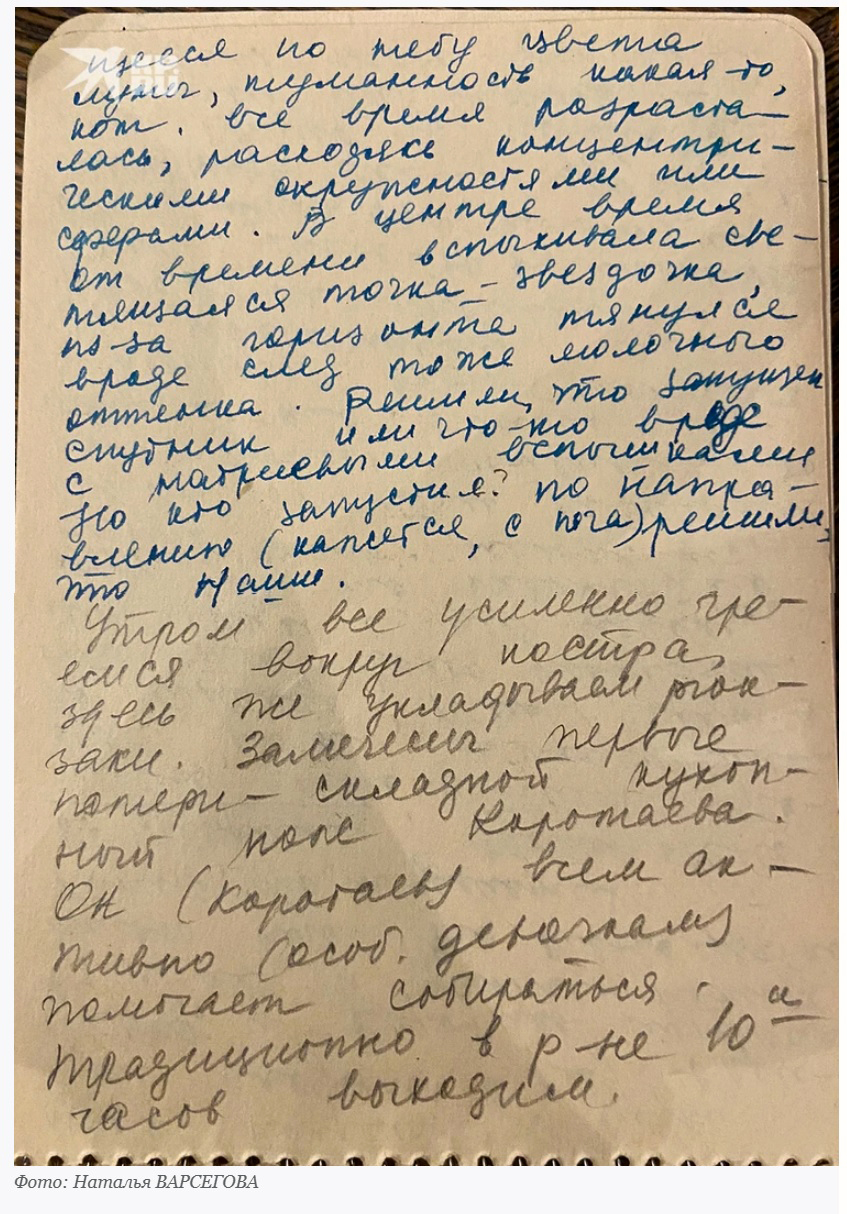 щееся по небу цвета
луны, туманность какая-то,
кот. все время разраста-
лась, расходясь концентри-
ческими окружностями или
сферами. В центре время
от времени вспыхивала све-
тящаяся точка - звездочка,
из-за горизонта тянулся
вроде след тоже молочного
оттенка. Решили, это запущен
спутник или что-то вроде
с натриевыми вспышками
Но кто запустил? по напра-
влению (кажется, с юга) решили,
что Наши.
Утром все усиленно гре-
емся вокруг костра,
здесь же укладываем рюк-
заки. Замечены первые
потери - складной кухон-
ный нож Коротаева.
Он (Коротаев) всем ак-
тивно (особ. девочкам)
помогает собираться.
Традиционно в р-не 10
часов выходим.
Фото: Наталья ВАРСЕГОВА